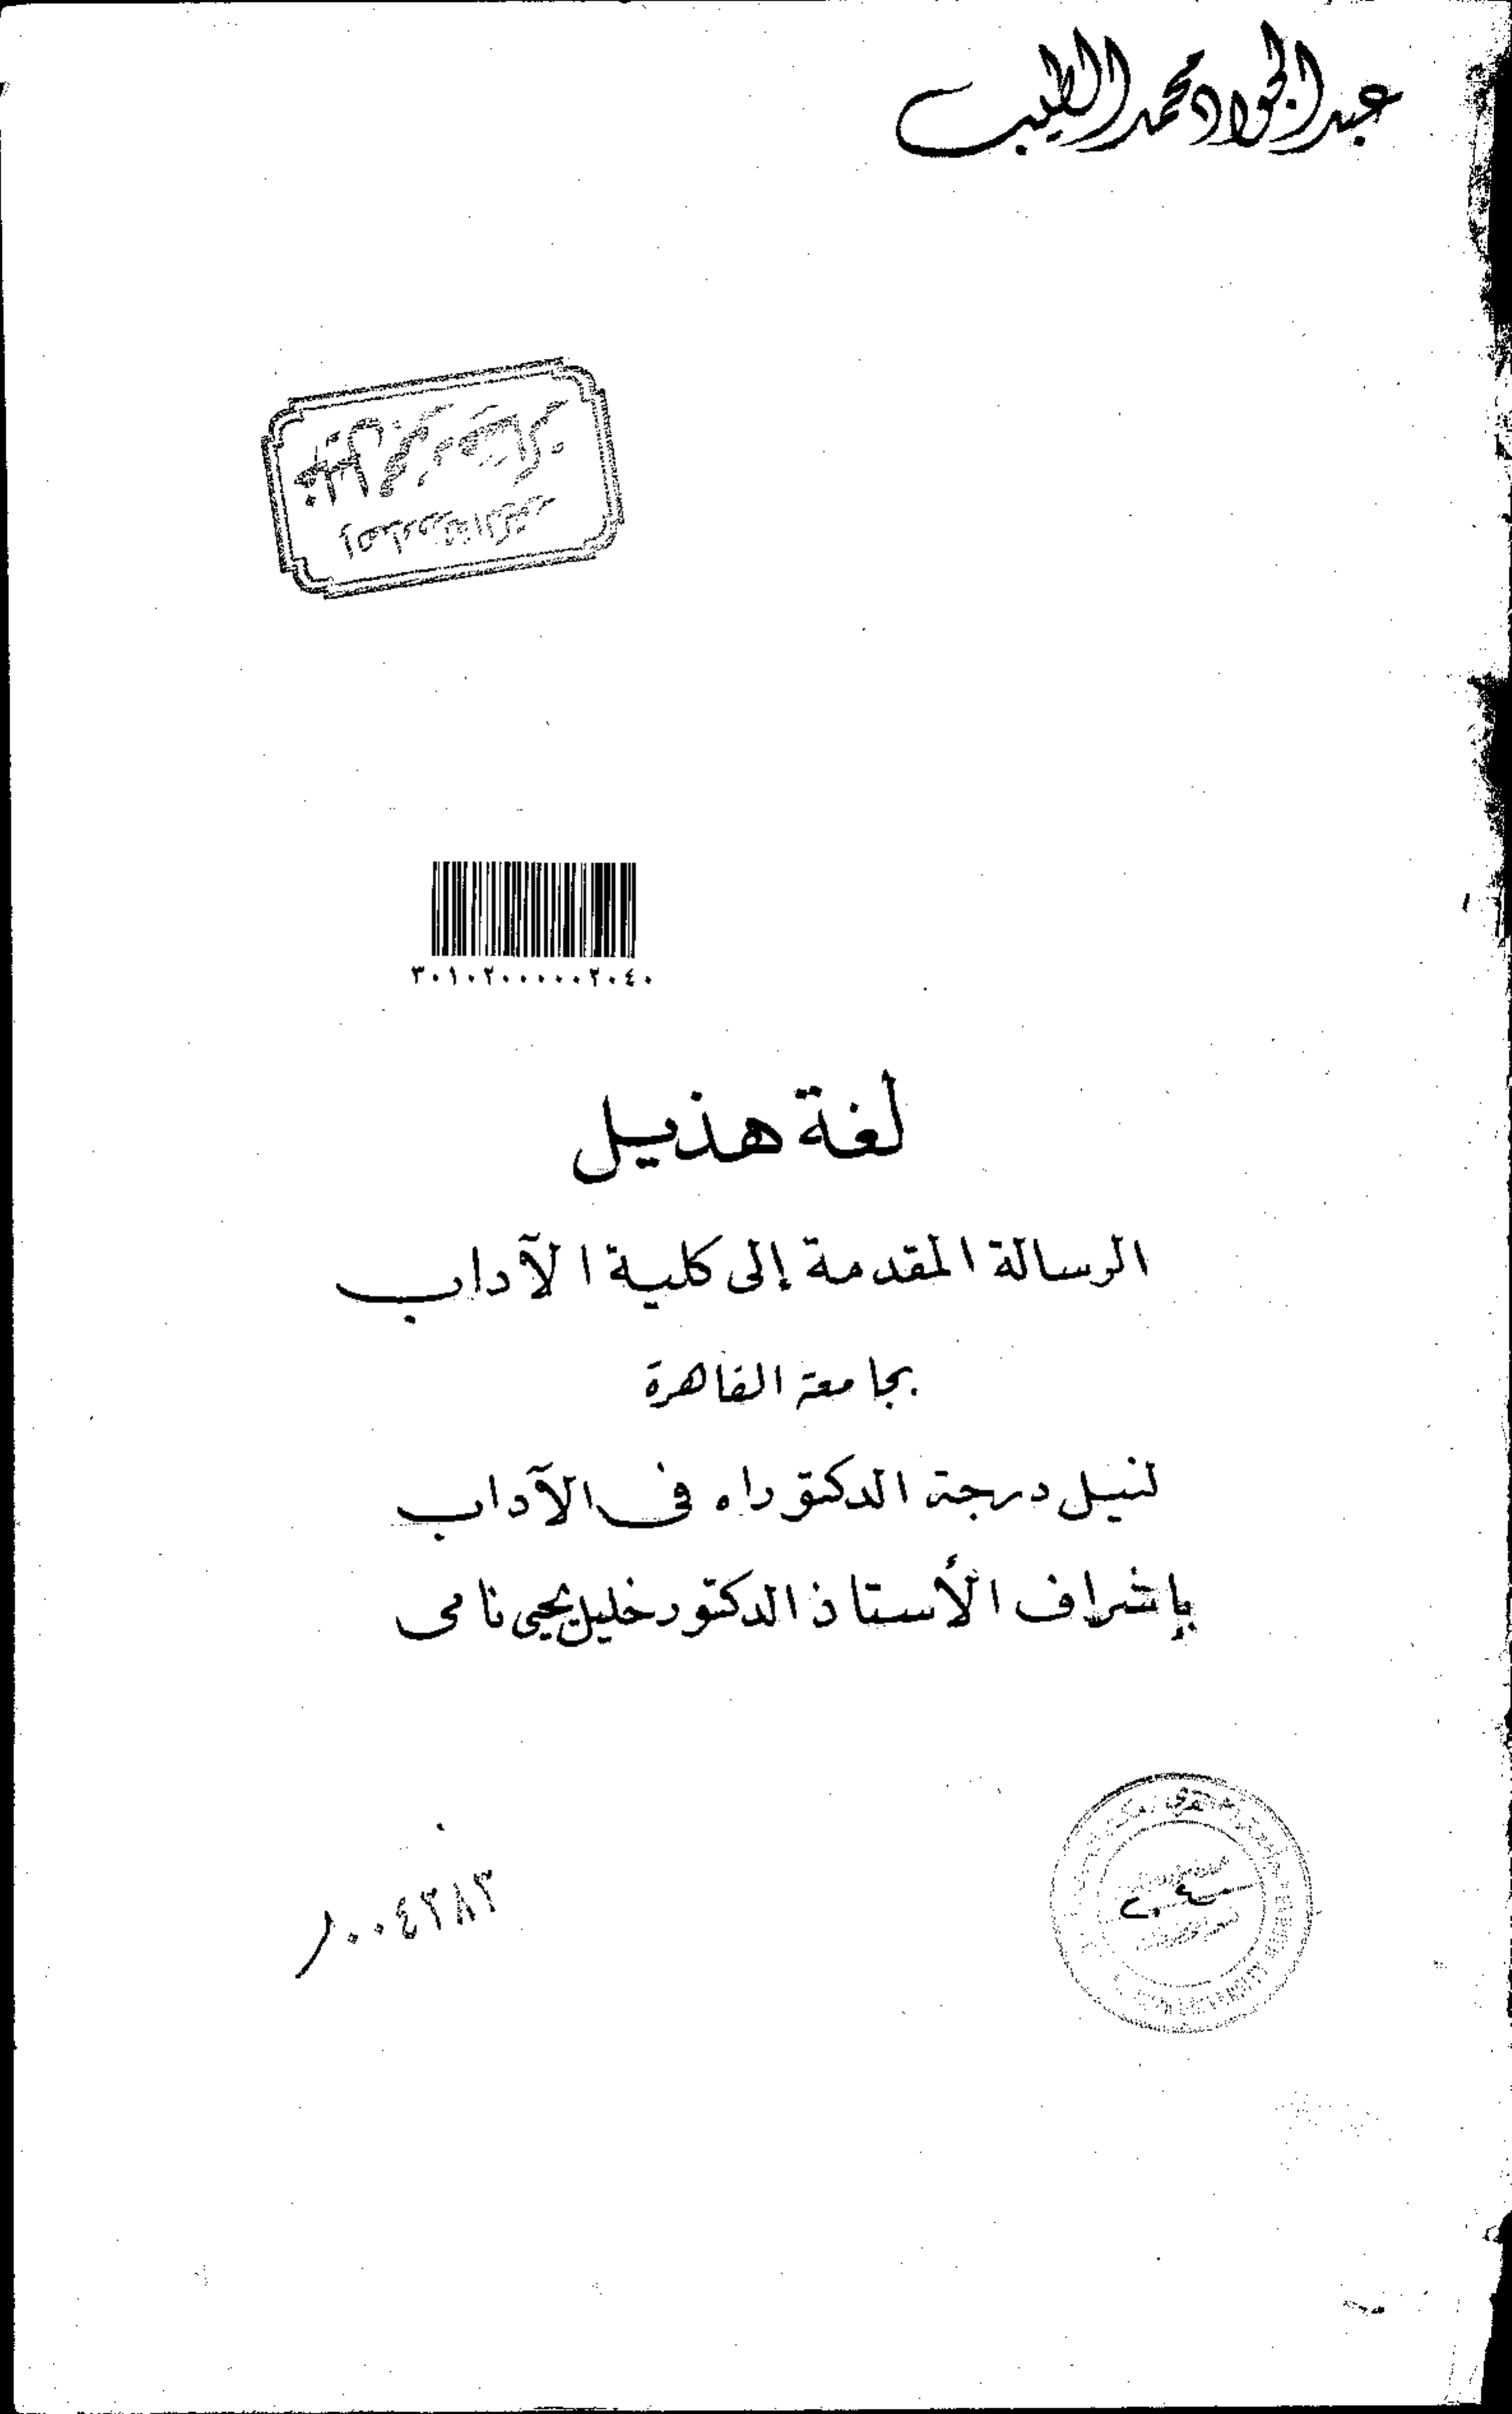 عبد الجواد محمد الطيب
٣٠١٠٢٠٠٠٠٠٢٠٤٠
لغة هذيل
الرسالة المقدمة إلى كلية الآداب
بجامعة القاهرة
لنيل درجة الدكتوراه في الآداب
بإشراف الأستاذ الدكتور خليل يحيى نامى
٠٠٤٣٨٣